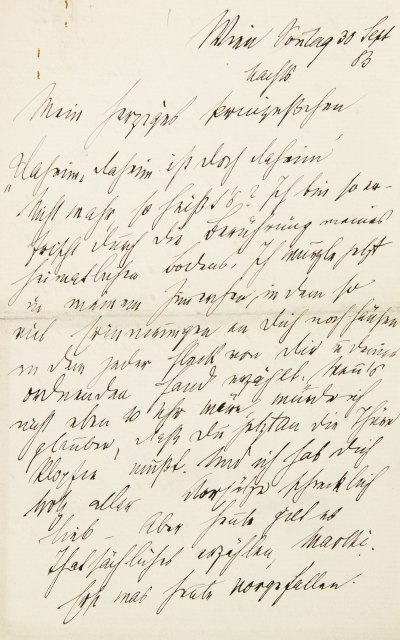 Wien Sonntag 30 Sept
83
Nachts
Mein herziges Prinzeßchen
„Daheim, daheim ist doch daheim"
Nicht wahr so heißt's? Ich bin so er-
frischt durch die Berührung meines
heimatlichen Bodens. Ich sitze jetzt
in meinem Zimmerchen, in dem so
viel Erinnerungen an Dich noch hausen
in dem jeder Fleck von Dir u Deiner
ordnenden Hand erzählt. Wenn's
nicht eben 10 Uhr wäre würde ich
glauben, daß Du jetzt an die Thüre
klopfen mußt. Und ich hab Dich
trotz aller Vorsätze schrecklich
lieb – Aber heute gilt es
Thatsächliches erzählen,
Erst was heute vorgefallen.